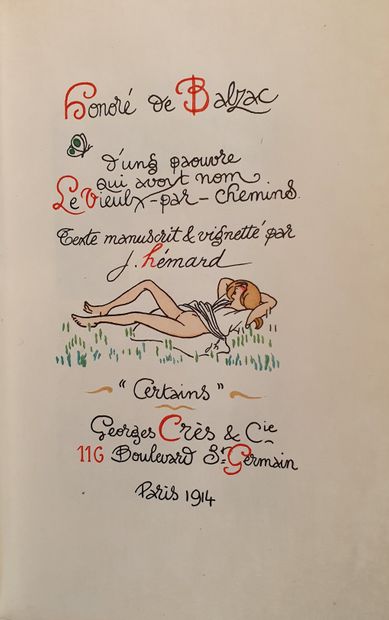 Honoré de Balzac
d'ung paouvre
qui avoit nom
Le Vieulx-par-chemins.
Texte manuscrit & vignetté par
J. hémard
"Certains"
Georges Crès & Cie
116 Boulevard St Germain
Paris 1914